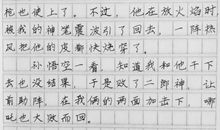 枪也使上了。不过，他在放火焰时
被我的神笔震波引了回去，一阵热
风把他的皮都快烧穿了。
孙悟空一看，知道我和他干下
去也没结果，于是放了二郎神，让
前助阵，在我俩的两面加击下，哪
吒也大败而回。